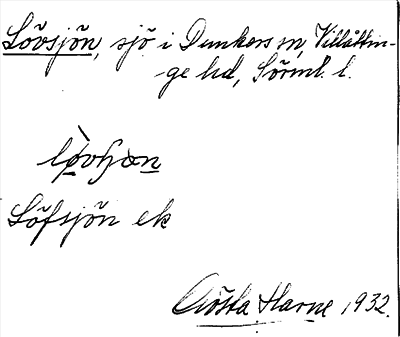 Lövsjön, sjö i Dunkers sn, Villåttin-
ge hd, Sörml. l.
Löfsjön ek
Gösta Harne 1932.